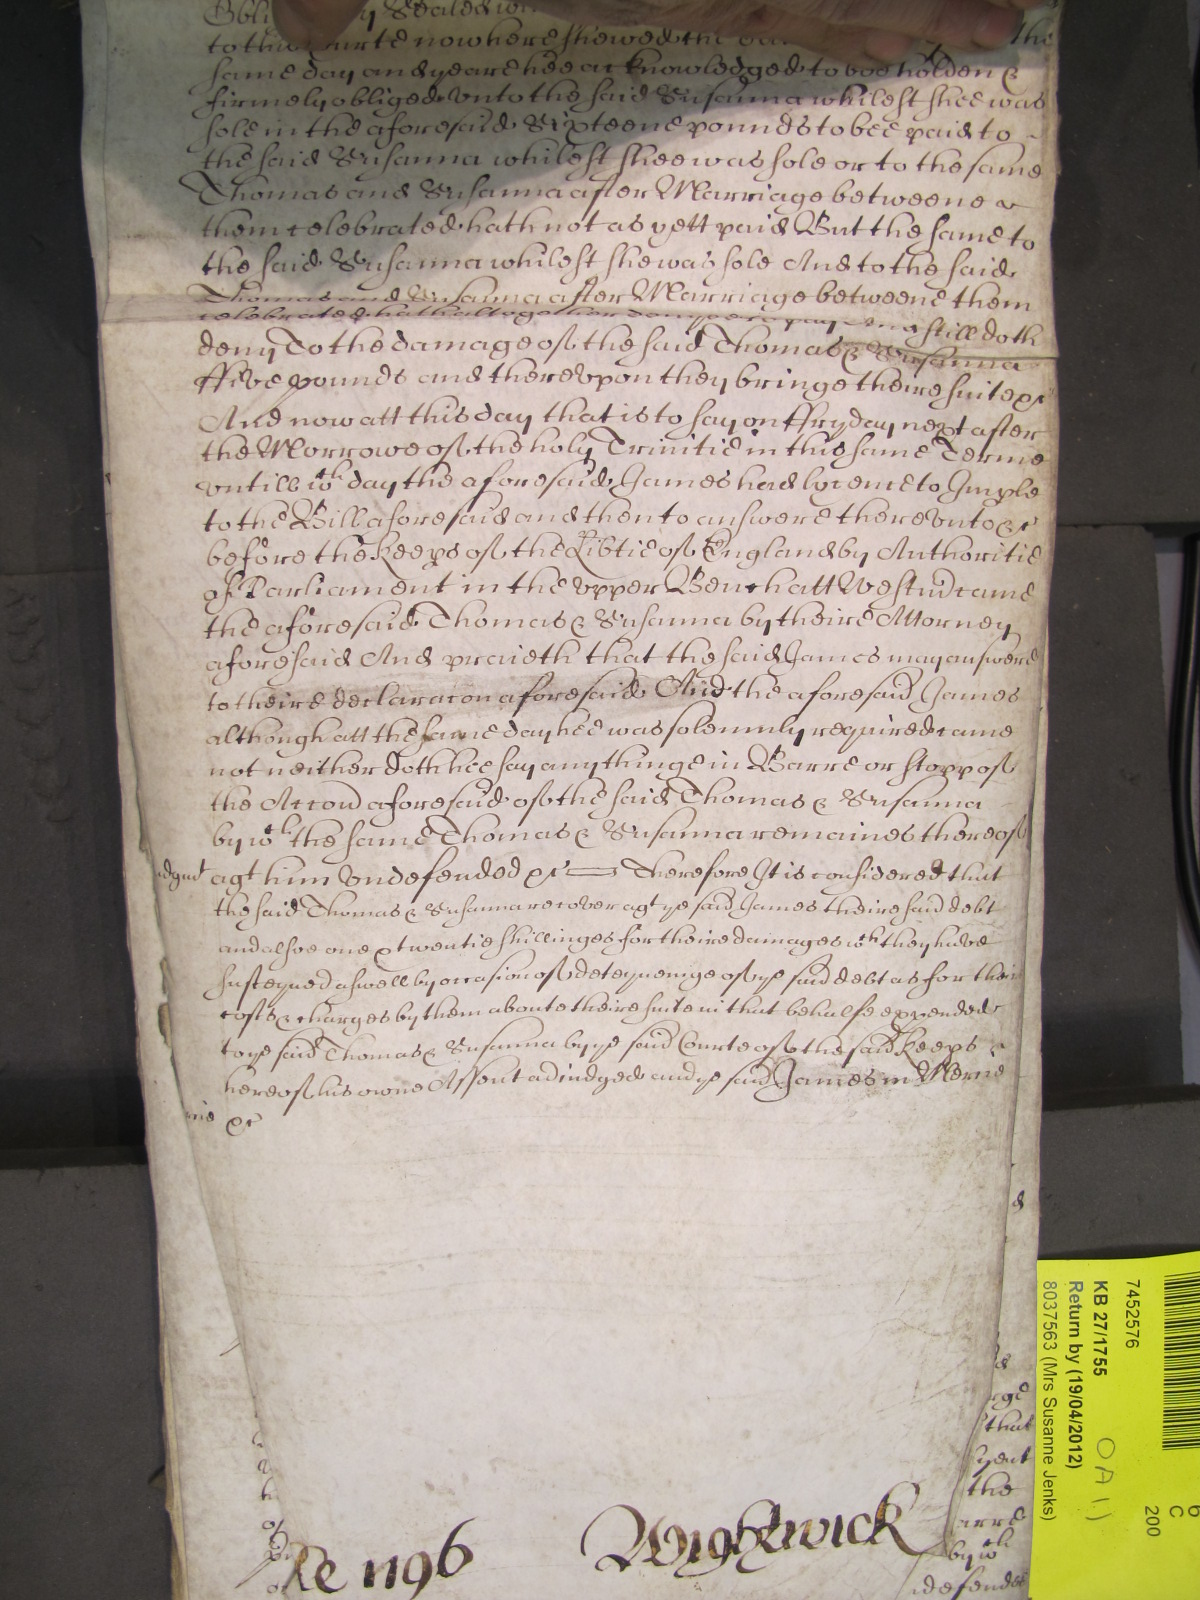 Obli y Sealed
to this Courte now here shewed the the
same day and yeare hee acknowledged to bee holden &
firmely obliged vnto the said Susanna whilest shee was
sole in the aforesaid Sixteene pounds to bee paid to
the said Susanna whilest shee was sole or to the same
Thomas and Susanna after Marriage betweene
them celebrated hath not as yett paid But the same to
the said Susanna whilest she was sole And to the said
Thomas and Susanna after Marriage betweene them
celebrated hath altogether denyed to pay And still doth
deny To the damage of the said Thomas & Susanna
ffive pounds and therevpon they bringe theire suite &c
And now att this day that is to say on ffryday next after
the Morrowe of the holy Trinitie in this same Terme
vntill wch day the aforesaid James had lycence to Imple
to the Bill aforesaid and then to answere therevnto &c
before the keeps of the Libtie of England by Authoritie
of Parliament in the vpper Bench att Westm came
the aforesaid Thomas & Susanna by theire Attorney
aforesaid And praieth that the said James may answere
to theire declaracon aforesaid And the aforesaid James
although att the same day hee was solemnly required came
not neither doth hee say any thinge in Barre or stopp of
the Accon aforesaid of the said Thomas & Susanna
by wch the same Thomas & Susanna remaines thereof
dgmt agt him vndefended &c Therefore It is considered that
the said Thomas & Susanna recover agt ye said James theire said debt
and alsoe one & twentie shillinges for theire damages wch they have
susteyned aswell by occasion of deteyneinge of ye said debt as for their
costs & charges by them aboute theire suite in that behalfe expended
to ye said Thomas & Susanna by ye said Courte of the said keeps
hereof his owne Assent adiudged and ye said James in Mercie
cie &c
d
that
the
arre
by wch
defended
Re 1196 Wightwick
7452576
KB 27/1755
Return by (19/04/2012)
8037563 (Mrs Susanne Jenks)
OA 1)
6
C
200